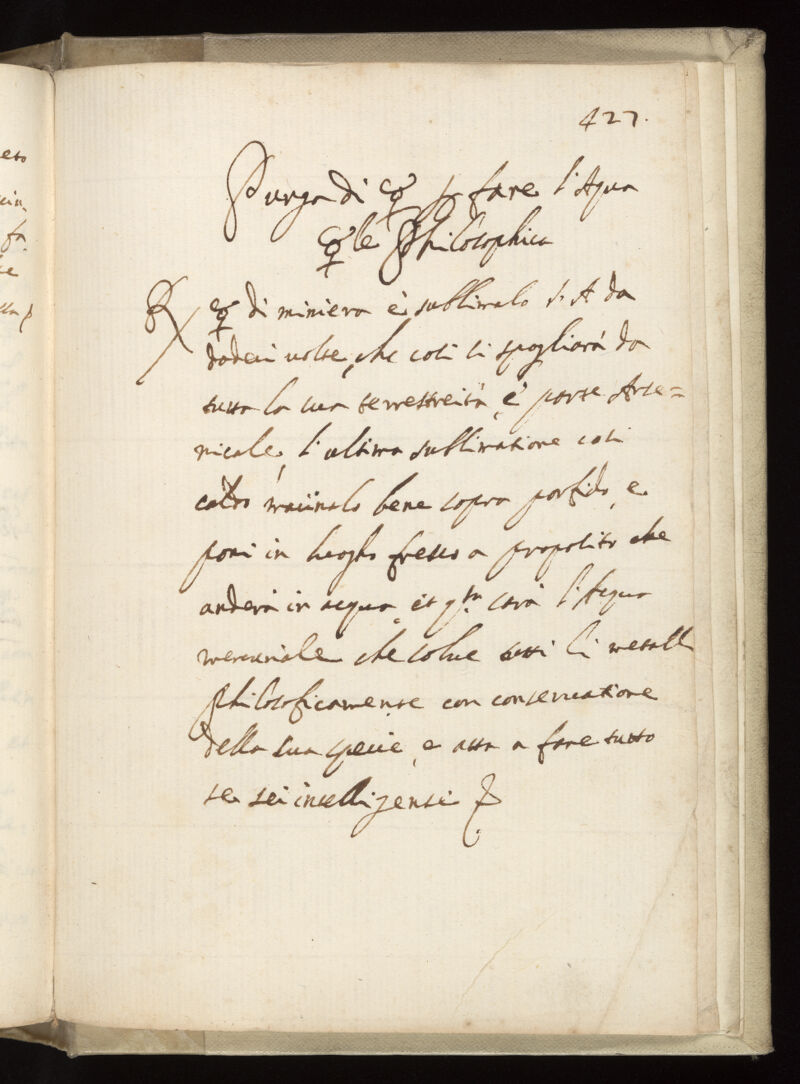 427.
Purga di ☿ p fare l'Aqua
☿le Philosophica
℞ ☿ di miniera è sublimalo S. A da
dodeci uolte, che cosi si spogliarà da
tutta la sua terrestreità, è parte Arse=
nicale, l'ultima sublimatione cosi
macinalo bene sopra porfido, e
poni in luogho fresco a proposito che
anderà in acqua, et qsta sarà l'Acqua
mercuriale che solue tutti li metalli
philosoficamente con conseruatione
della sua specie, e atta a fare tutto
se sei intelligente